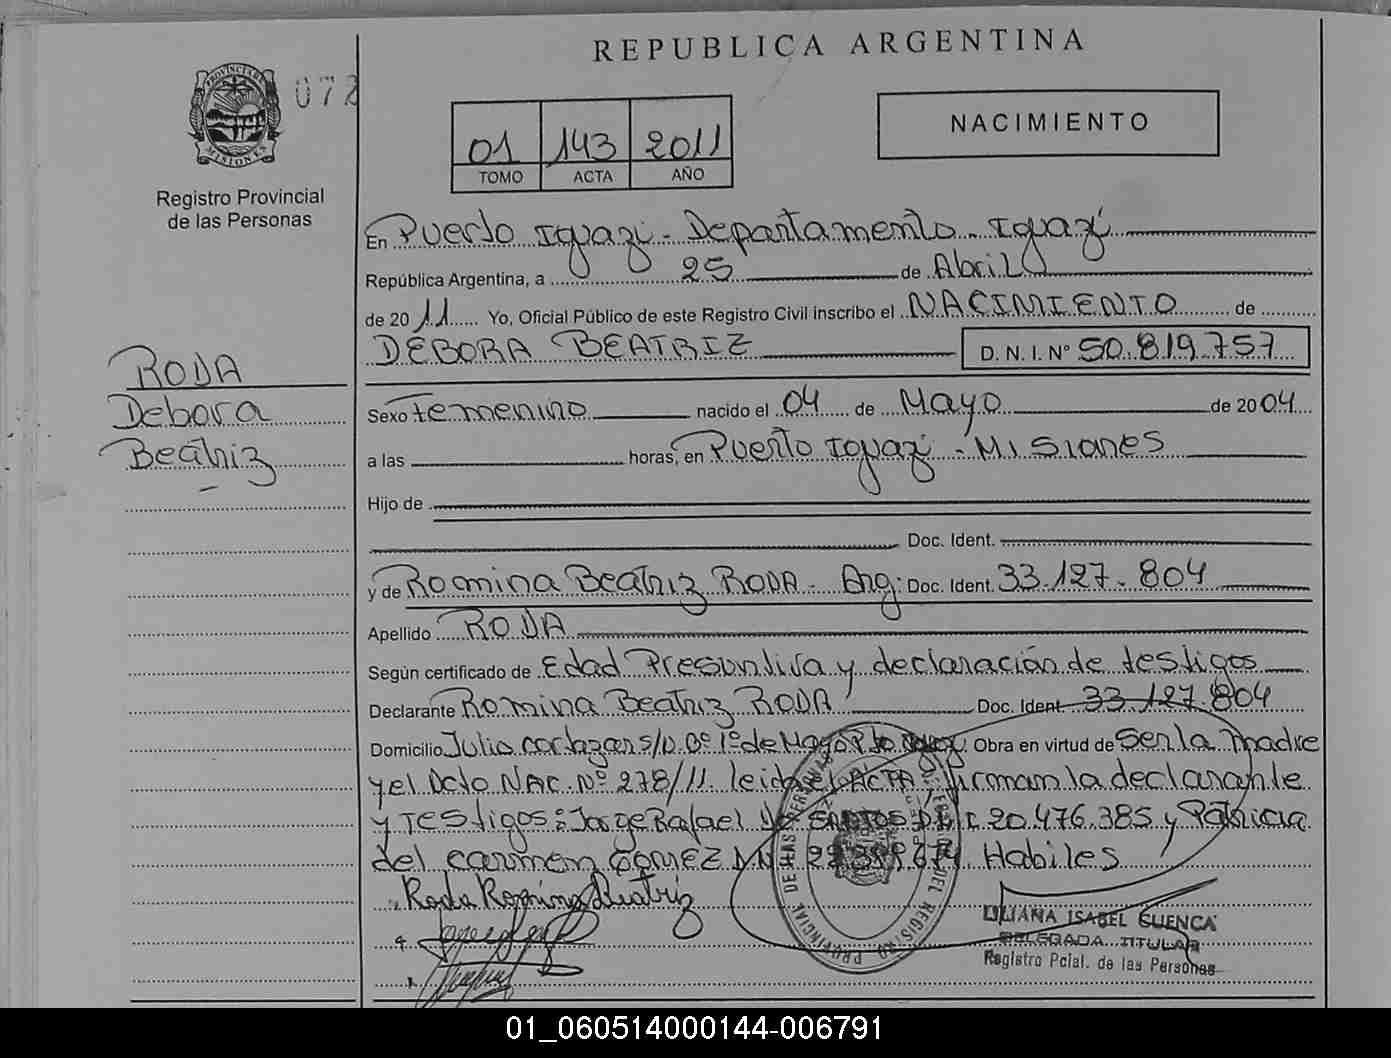 REPUBLICA ARGENTINA
PROVINCIA DE
MISIONES
072
Registro Provincial
de las Personas
01 143 2011
TOMO ACTA AÑO
NACIMIENTO
En Puerto Iguazú - Departamento - Iguazú
República Argentina, a 25 de Abril
de 2011 Yo, Oficial Público de este Registro Civil inscribo el NACIMIENTO de
DEBORA BEATRIZ D. N. I. Nº 50.819.757
RODA
Debora
Beatriz
Sexo Femenino nacido el 04 de Mayo de 2004
a las horas, en Puerto Iguazú - Misiones
Hijo de
Doc. Ident.
y de Romina Beatriz RODA - Arg: Doc. Ident. 33.127.804
Apellido RODA
Según certificado de Edad Presuntiva y declaración de testigos
Declarante Romina Beatriz RODA Doc. Ident. 33.127.804
Domicilio Julio Cortazar s/n Bº 1º de Mayo Obra en virtud de Ser la madre
y el Dcto NAC. Nº 278/11. leida el ACTA, firman la declarante
y Testigos: Jorge Rafael 20.476.385 y Patricia
del carmen GOMEZ Habiles
Roda Romina Beatriz
LILIANA ISABEL CUENCA
DELEGADA TITULAR
Registro Pcial. de las Personas
01_060514000144-006791